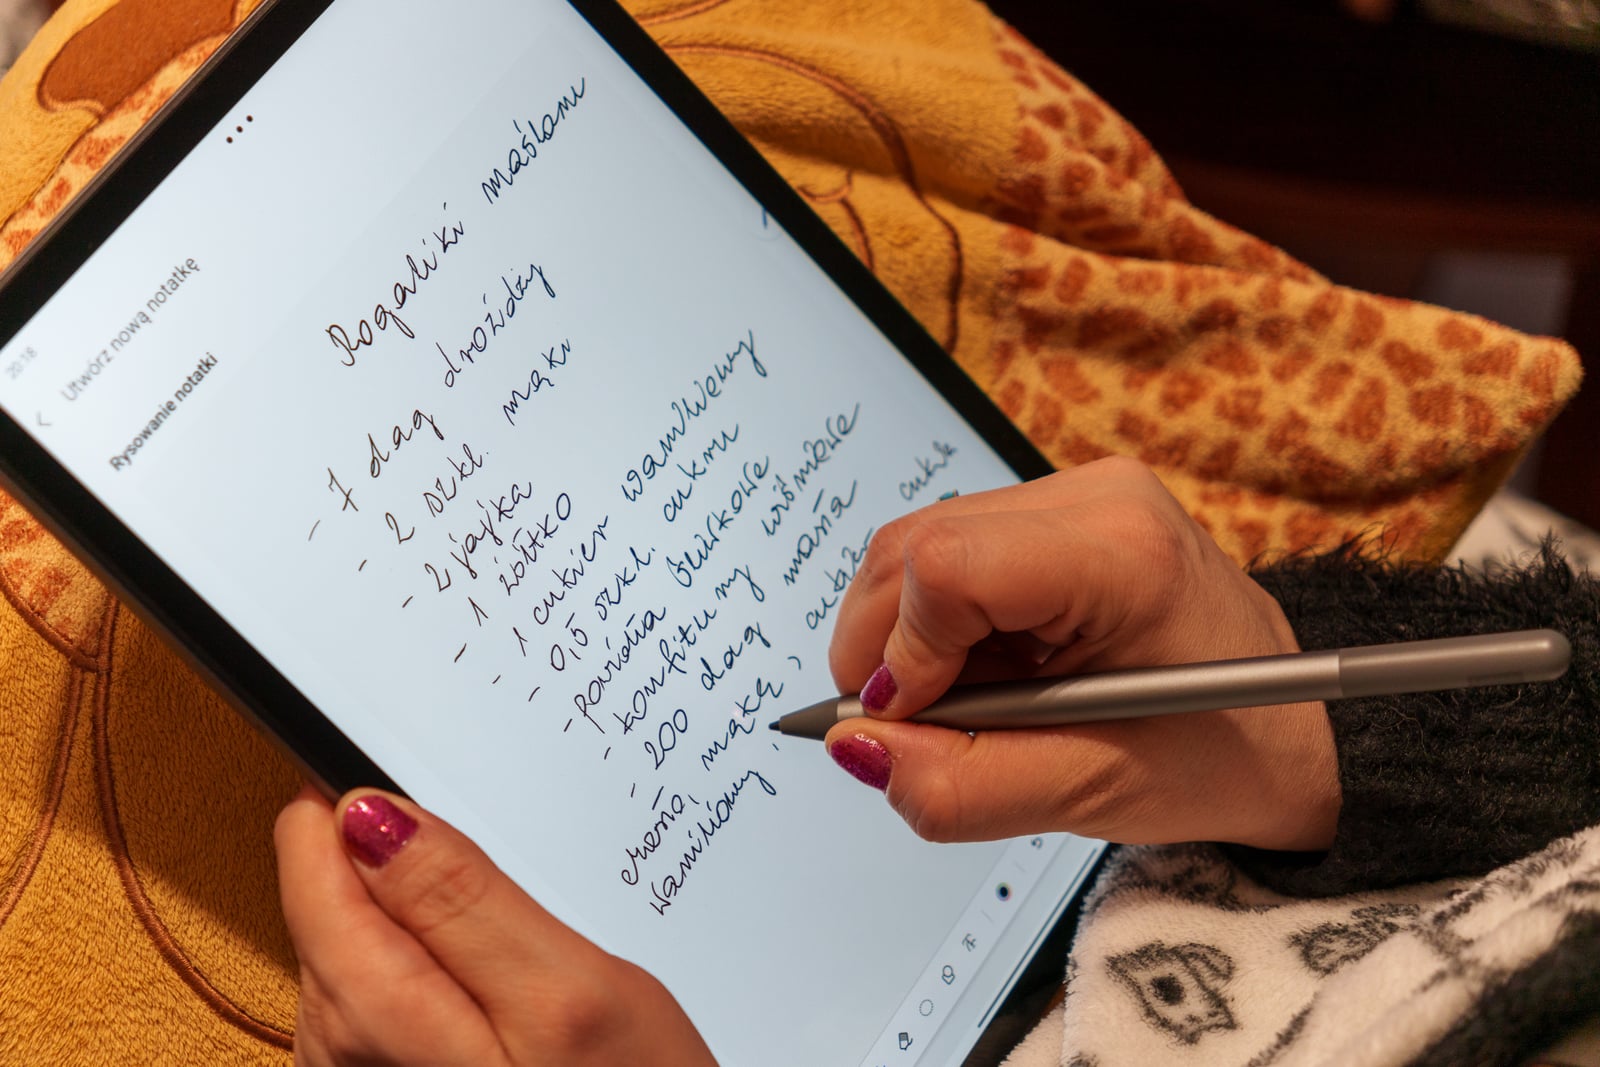 20:18
Utwórz nową notatkę
Rysowanie notatki
Rogaliki maślane
- 7 dag drożdży
- 2 szkl. mąki
- 2 jajka
- 1 żółtko
- 1 cukier waniliowy
- 0,5 szkl. cukru
- powidła śliwkowe
- konfitury wiśniowe
- 200 dag masła
mąkę, cukier cukier
waniliowy,